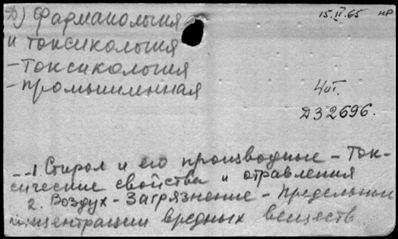 д) фармакология
15.II.65 нр
и токсикология
- токсикология
- промышленная
Чит.
Д32696.
1 Стирол и его производные - Ток-
сические свойства и отравления
2. Воздух - Загрязнение - Предельные
концентрации вредных веществ